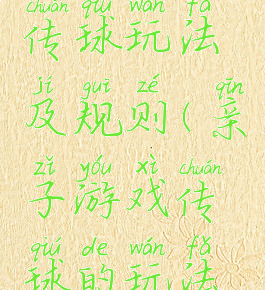 chuán qiú wán fǎ
传球玩法
jí guī zé qīn
及规则(亲
zǐ yóu xì chuán
子游戏传
qiú de wán fǎ
球的玩法